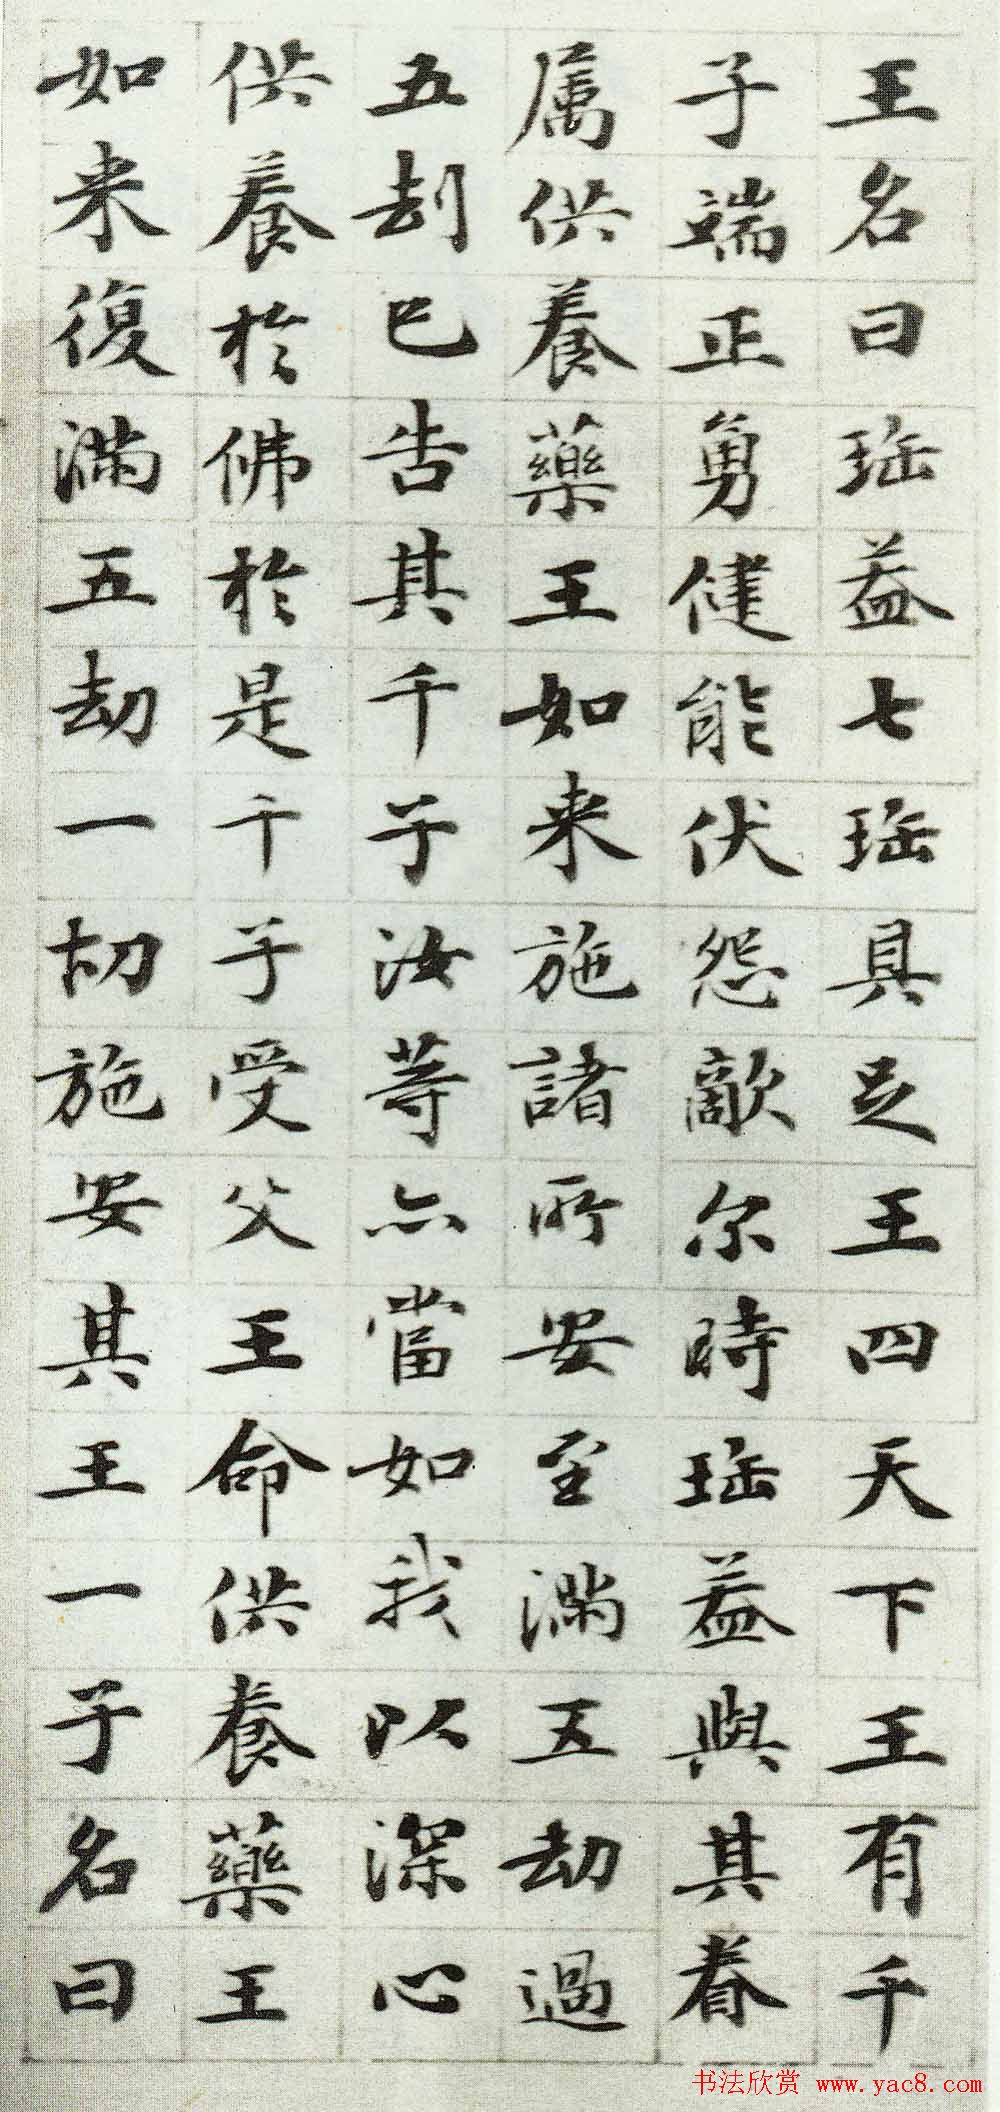 王名曰珤盖七珤具足王四天下王有千
子端正勇健能伏怨敵尔時珤盖與其眷
属供養藥王如来施諸所安至滿五劫過
五刦已告其千子汝等亦當如我以深心
供養於佛於是千子受父王命供養藥王
如来復滿五劫一切施安其王一子名曰
书法欣赏 www.yac8.com